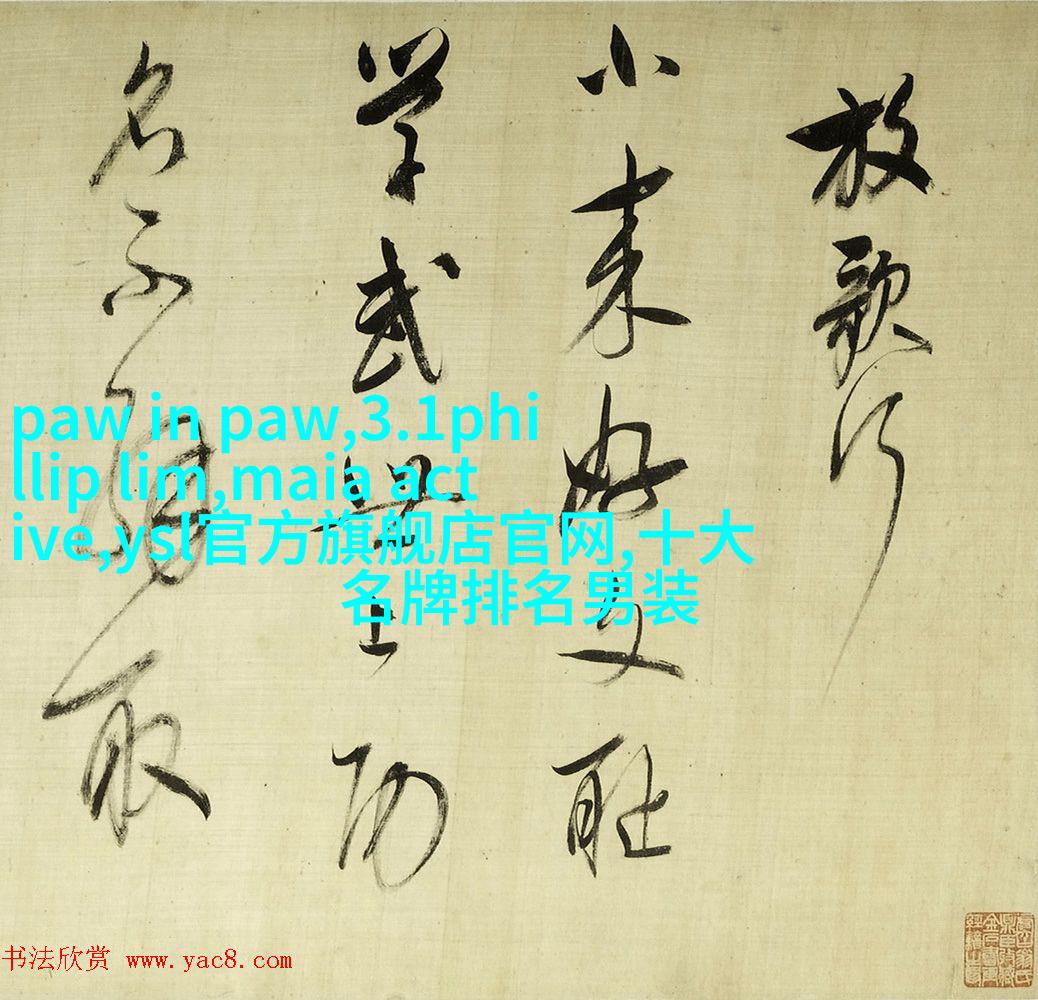 放歌行
小来好文耻
学武世上功
名不解取
paw in paw,3.1phi
llip lim,maia act
ive,ysl官方旗舰店官网,十大
名牌排名男装
书法欣赏 www.yac8.com